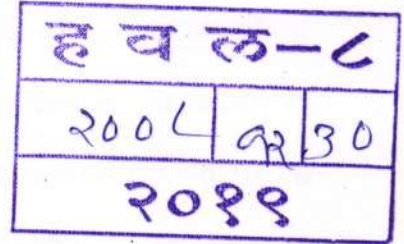 ह व ल-८
२००८ १२ ३०
२०१९